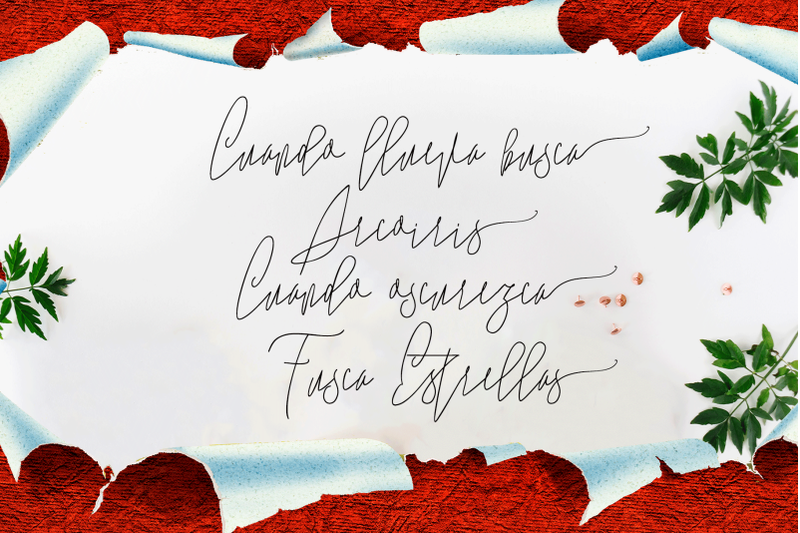 Cuando llueva busca
Arcoiris
Cuando oscurezca
Fusca Estrellas